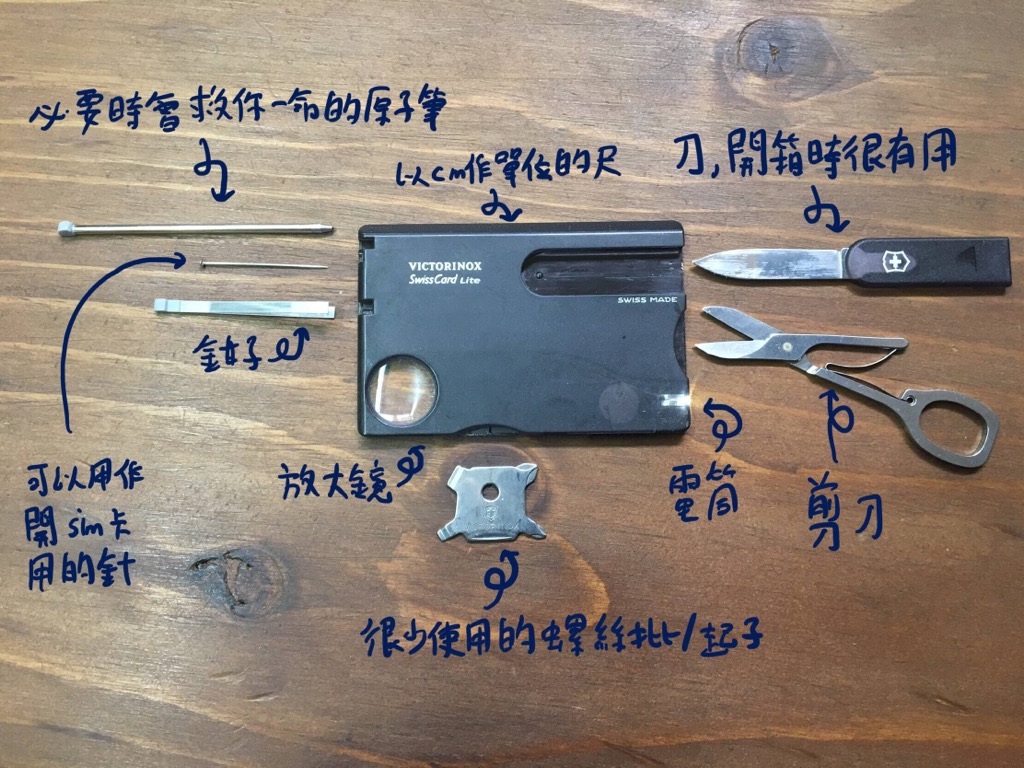 必要時會救你一命的原子筆
以cm作單位的尺
刀,開箱時很有用
VICTORINOX
SwissCard Lite
SWISS MADE
鉗子
可以用作
開sim卡
用的針
放大鏡
電筒
剪刀
很少使用的螺絲批/起子